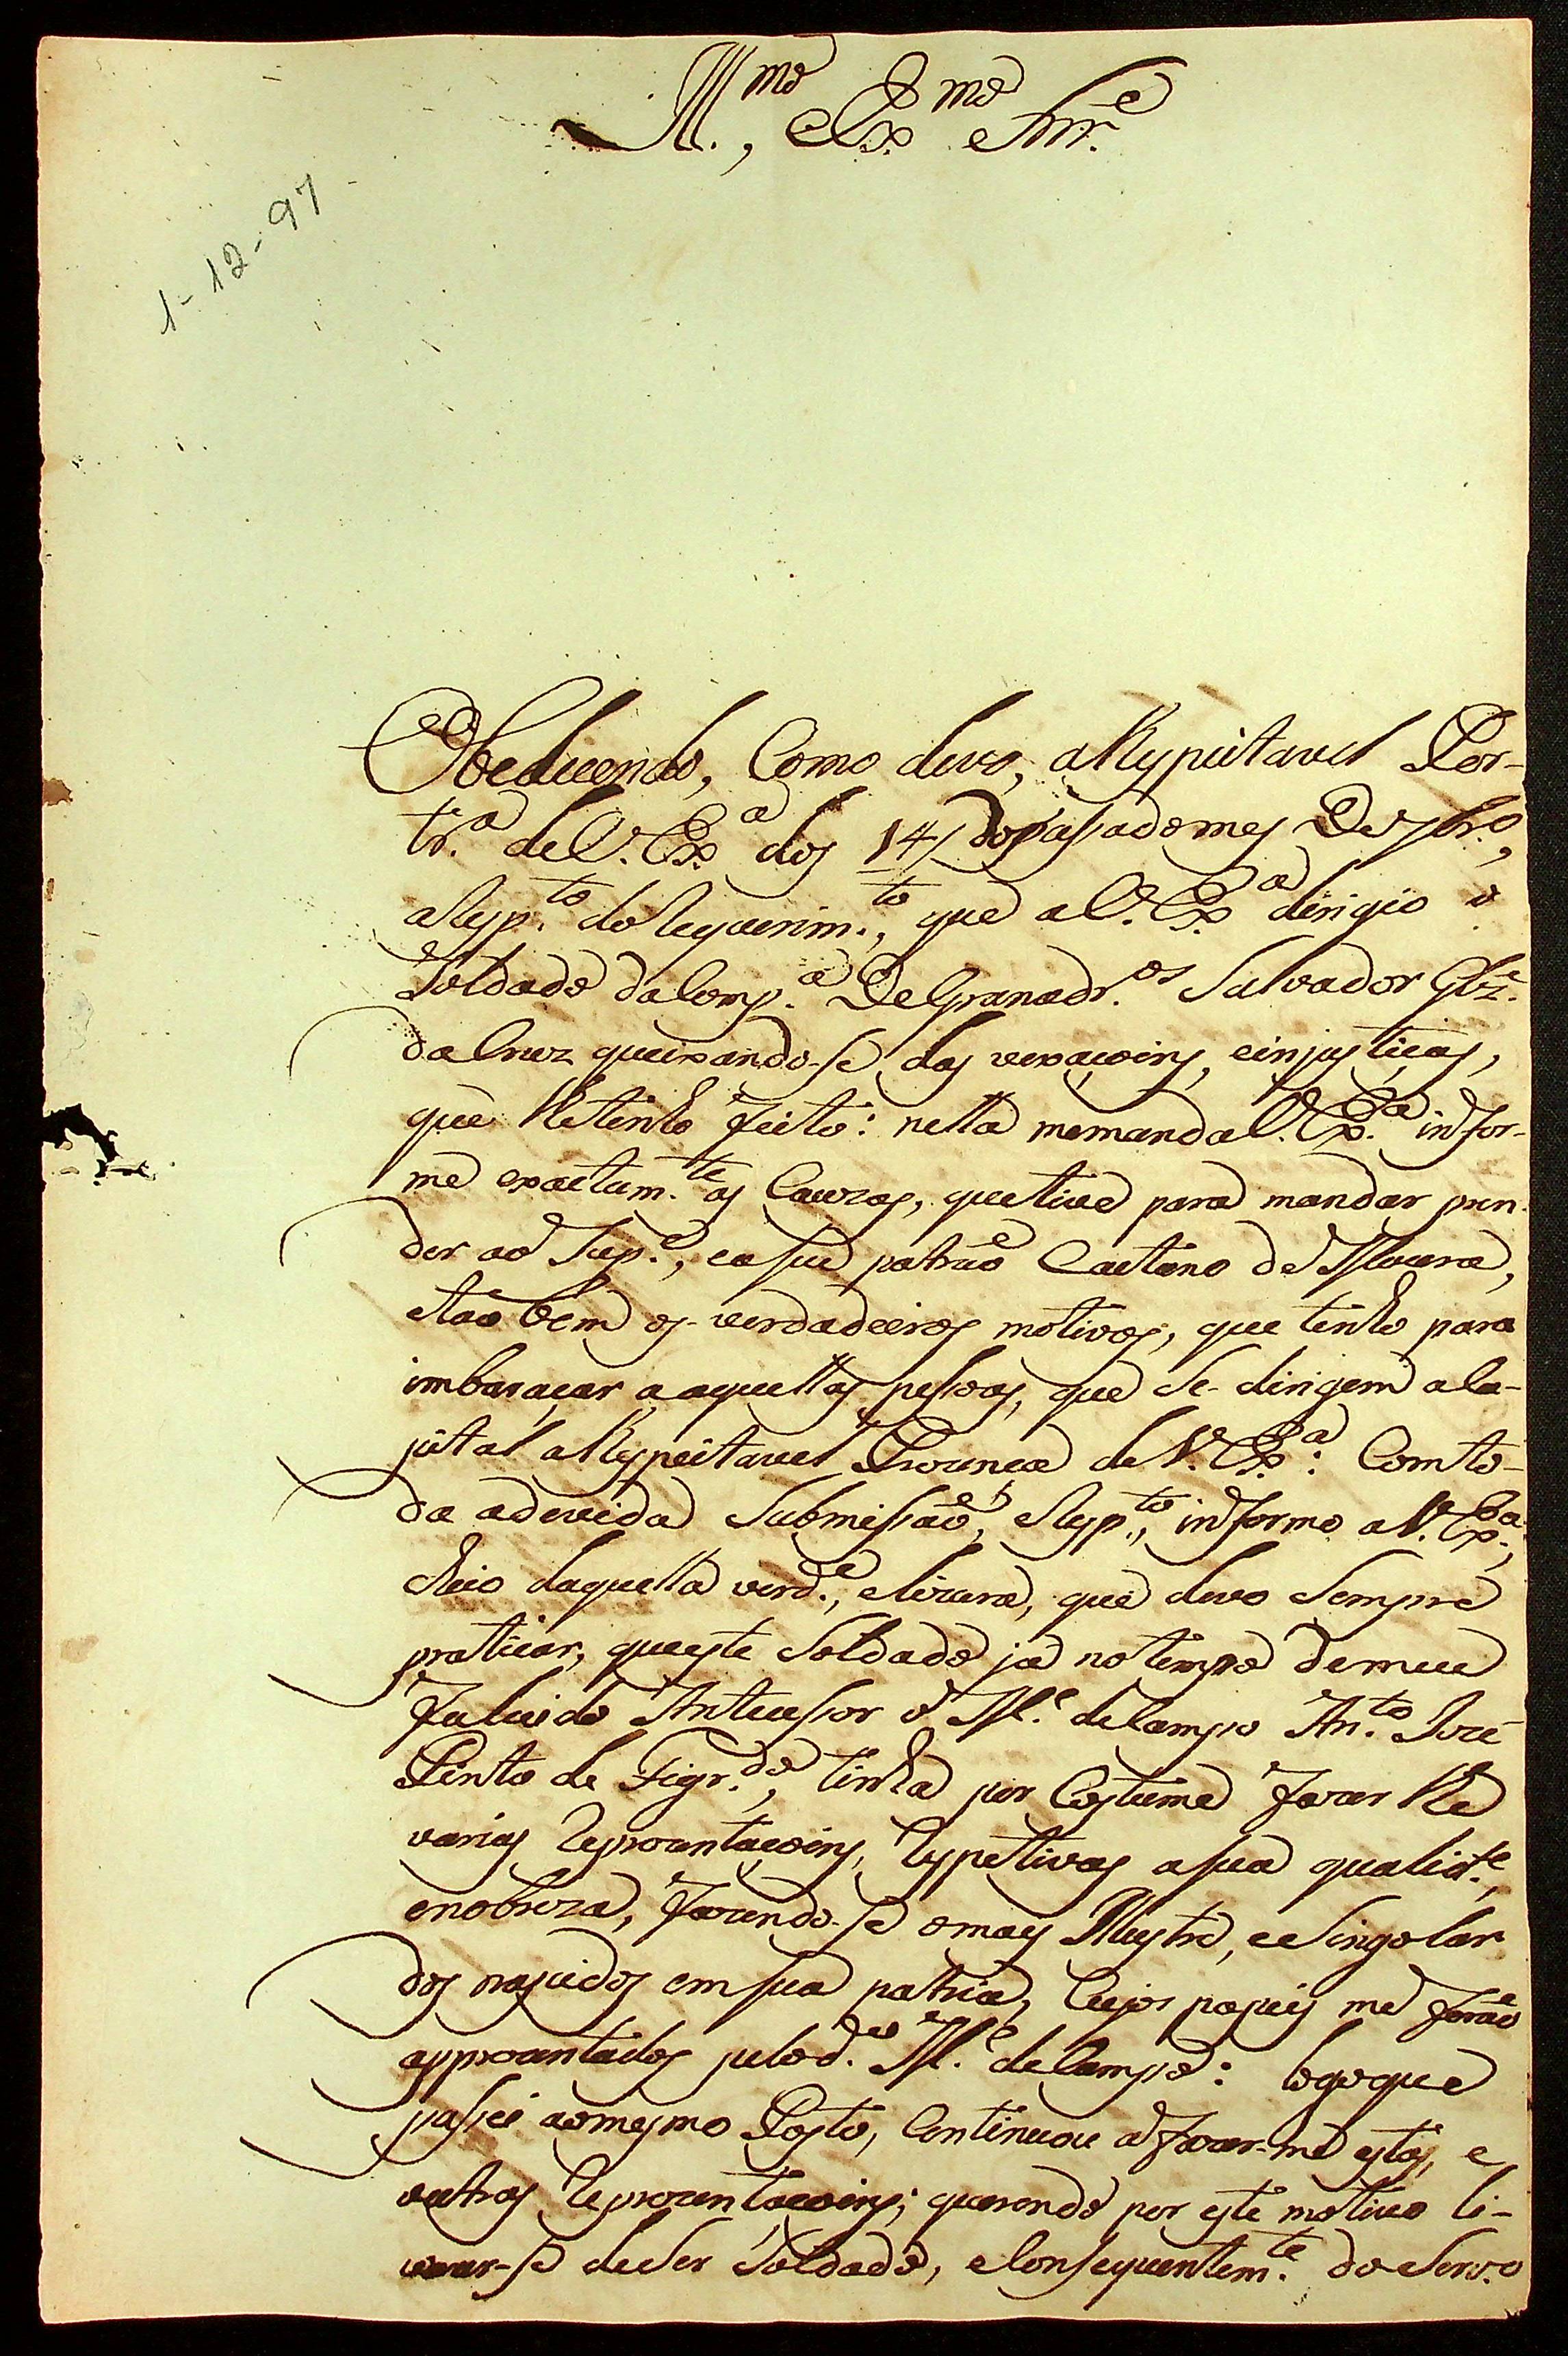 Ill.mo, e Ex.mo Snr.e
1-12-97
Obedecendo, Como devo, aRespeitavel Por-
tr.a deV. Ex.a dos 14, dopassadomes De 9br.o,
aResp.to doRequerim.to, que aV. Ex.a dirigio o
Soldado daComp.a DeGranadr.os Salvador Glz.
daCruz queixando-se das vexaçoins, einjustiças,
que lhetenho feito: nella memandaV. Ex.a infor-
me exactam.te as Cauzas, quetive para mandar pren-
der ao Sup.e, easeu patrão Caetano de Moura,
etão bem os verdadeiros motivos, que tenho para
imbaraçar a aquellas pessoas, que Se dirigem aCa-
pital aRespeitavel Prezença deV. Ex.a: Comto-
da adevida Submissão, eResp.to, informo aV. Ex.a,
cheio daquella verd.e, elizura, que devo Sempre
praticar, queeste Soldado já notempo demeu
falecido Antecessor o M.e deCampo An.to Jozé
Pinto de Figr.do, tinha por Costume fazer lhe
varias Reprezentaçoins, Respetivas asua qualid.e,
enobreza, fazendo-se omais Illustre, eSingolar
dos nascidos emsua patria, Cujos papeis me forão
apprezentados pelod.o M.e deCampo: logoque
passei aomesmo Posto, Continuou afazer-me estas, e
outras Reprezentaçoins; querendo por este motivo li-
vrar-se deSer Soldado, eConsequentem.te do Serv.o